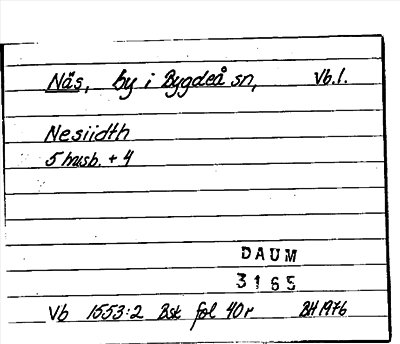 Näs, by i Bygdeå sn, Vb.l.
Nesiidth
5 husb. + 4
DAUM
3165
Vb 1553:2 Bsk fol 40r BH 1976